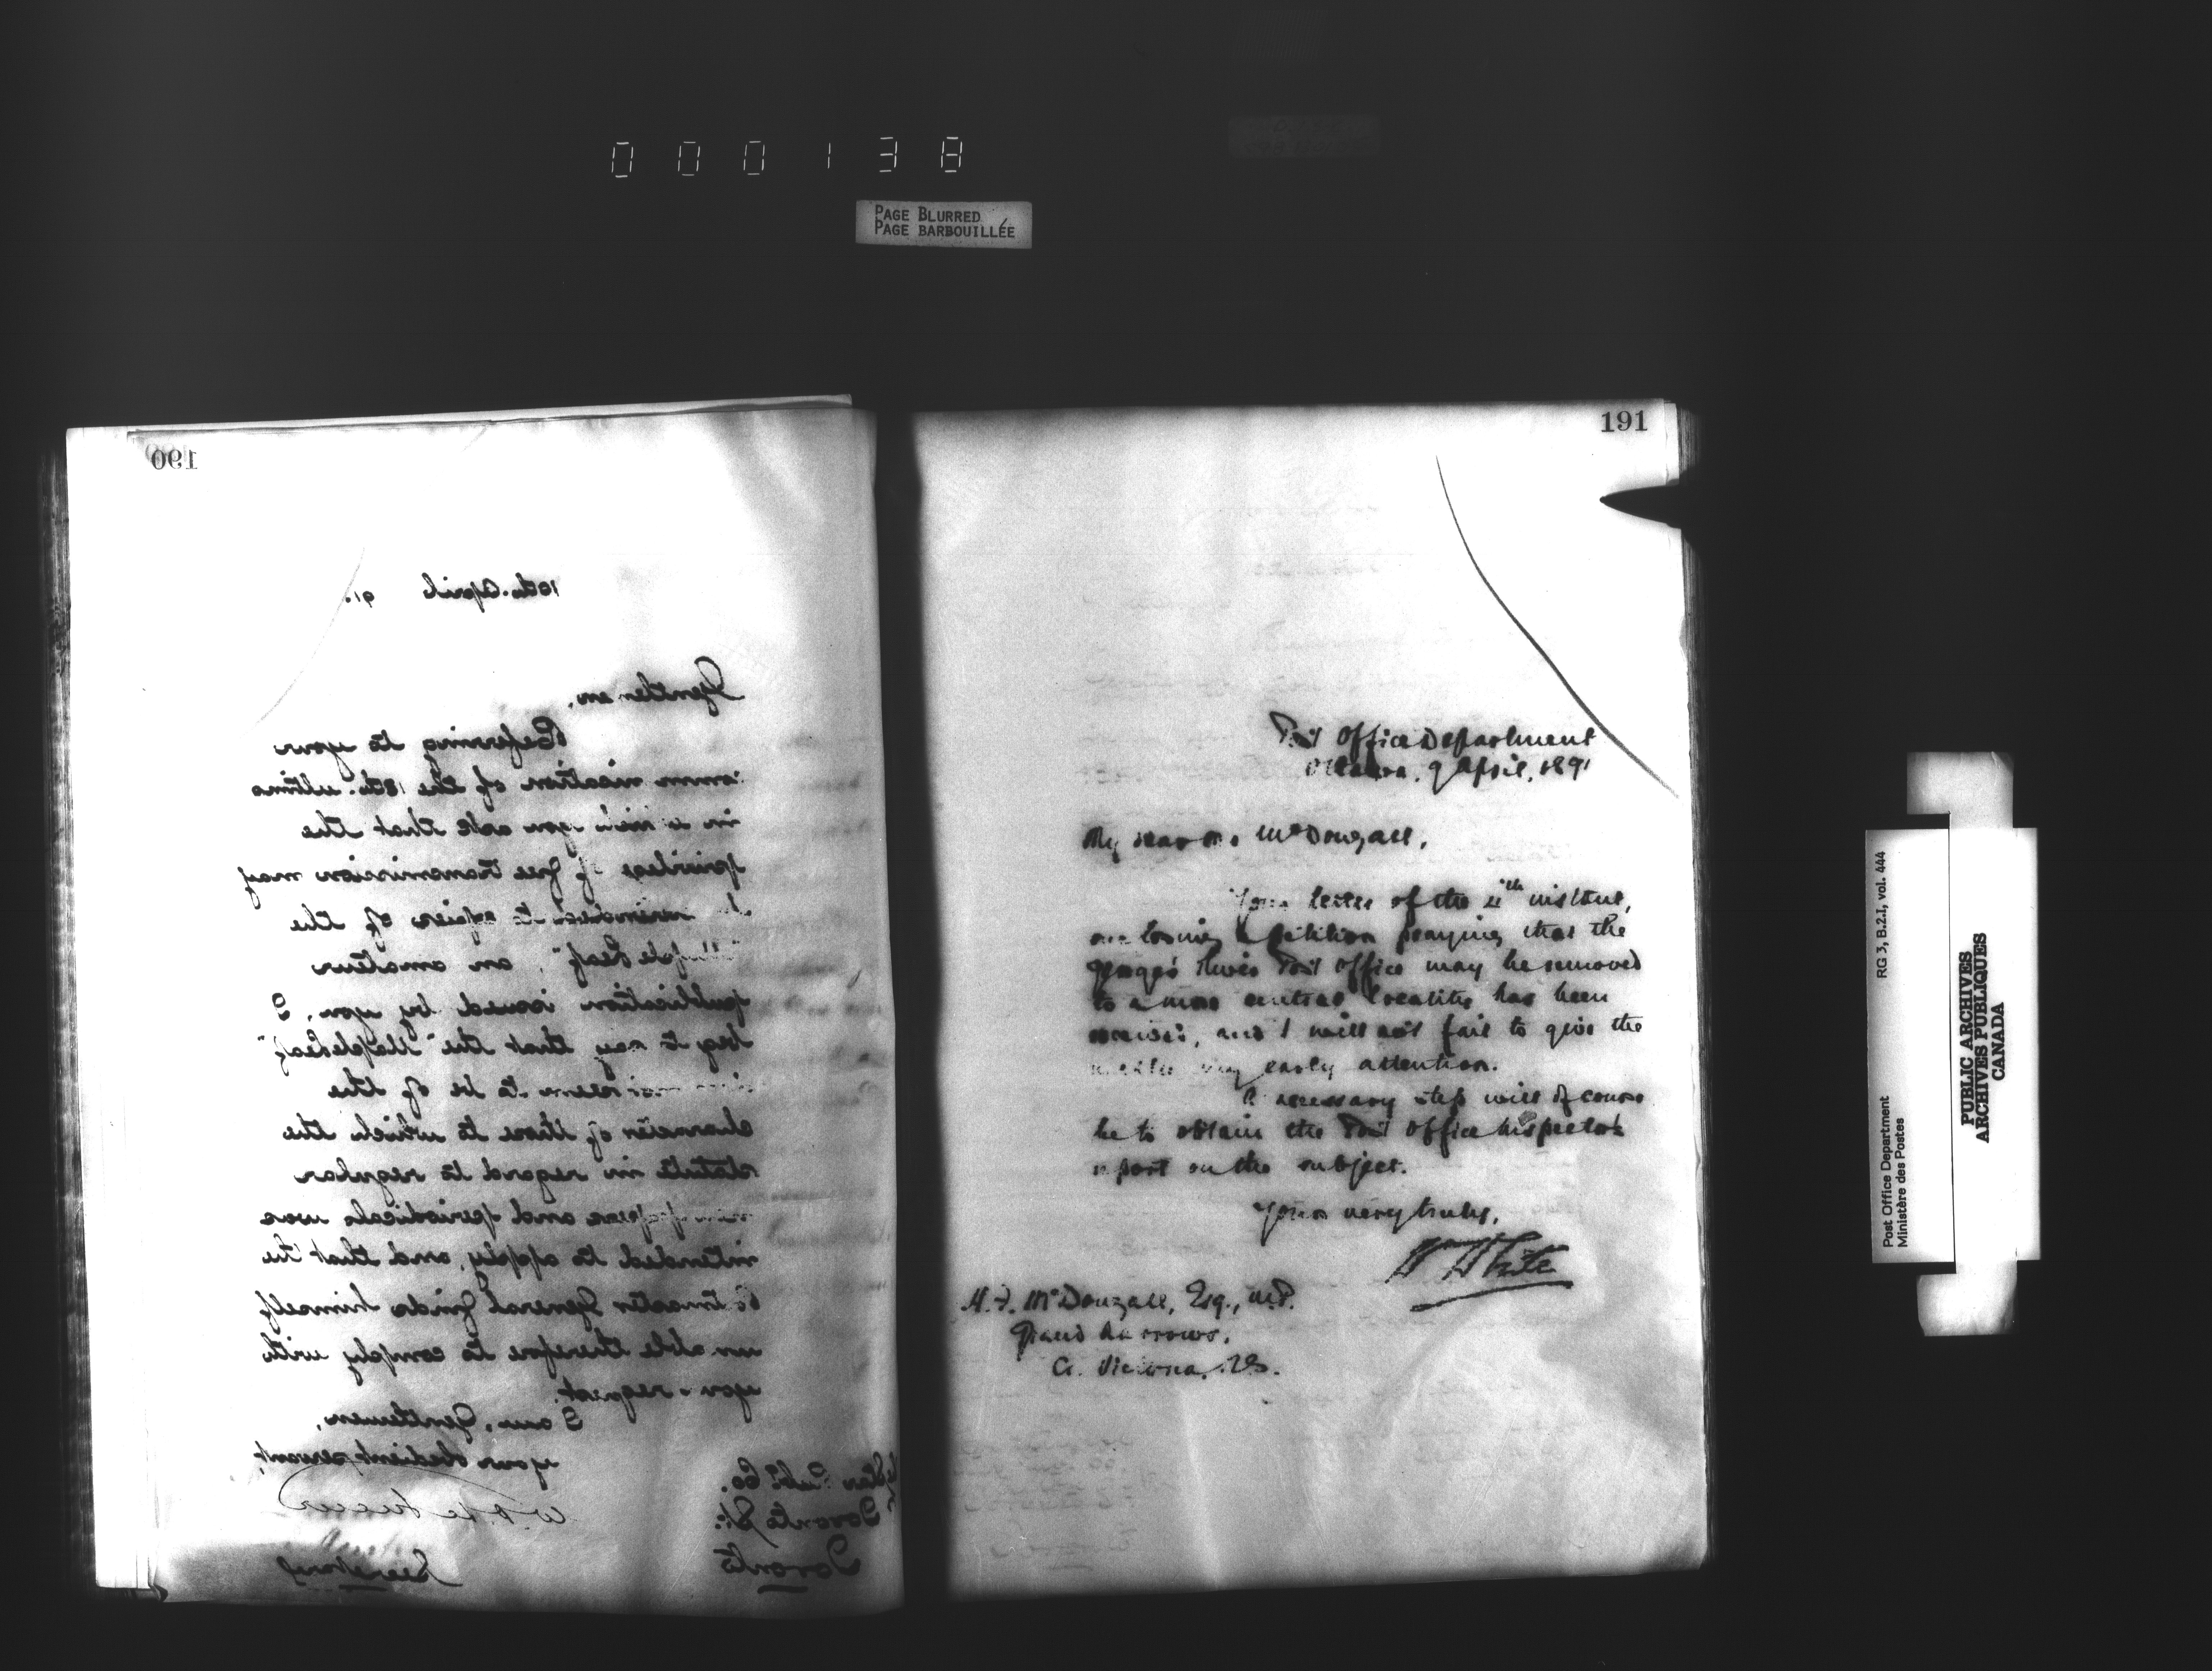 000138
PAGE BLURRED
PAGE BARBOUILLÉE
190
10th. April 91.
Gentlemen,
Referring to your
communication of the 18th. ultimo
in which you ask that the
privilege of free transmission may
be extended to copies of the
"Maple Leaf", an amateur
publication issued by you, I
beg to say that the "Maple Leaf"
does not seem to be of the
character of those to which the
statute in regard to regular
newspapers and periodicals was
intended to apply, and that the
Postmaster General finds himself
unable therefore to comply with
your request.
I am, Gentlemen,
your obedient servant,
Secretary
Publ. Co.
Toronto St.
Toronto
191
Post Office Department
Ottawa, 9 April, 1891
My dear Mr. McDougall,
Your letter of the 4th instant,
enclosing a petition praying that the
River Post Office may be removed
to a more central locality has been
received, and I will not fail to give the
matter my early attention.
A necessary step will of course
be to obtain the Post Office Inspector's
report on the subject.
Yours very truly,
Wm White
H. F. McDougall, Esq., M.P.
Grand Narrows,
Co. Victoria, N.S.
Post Office Department
Ministère des Postes
RG 3, B.2.I, vol. 444
PUBLIC ARCHIVES
ARCHIVES PUBLIQUES
CANADA